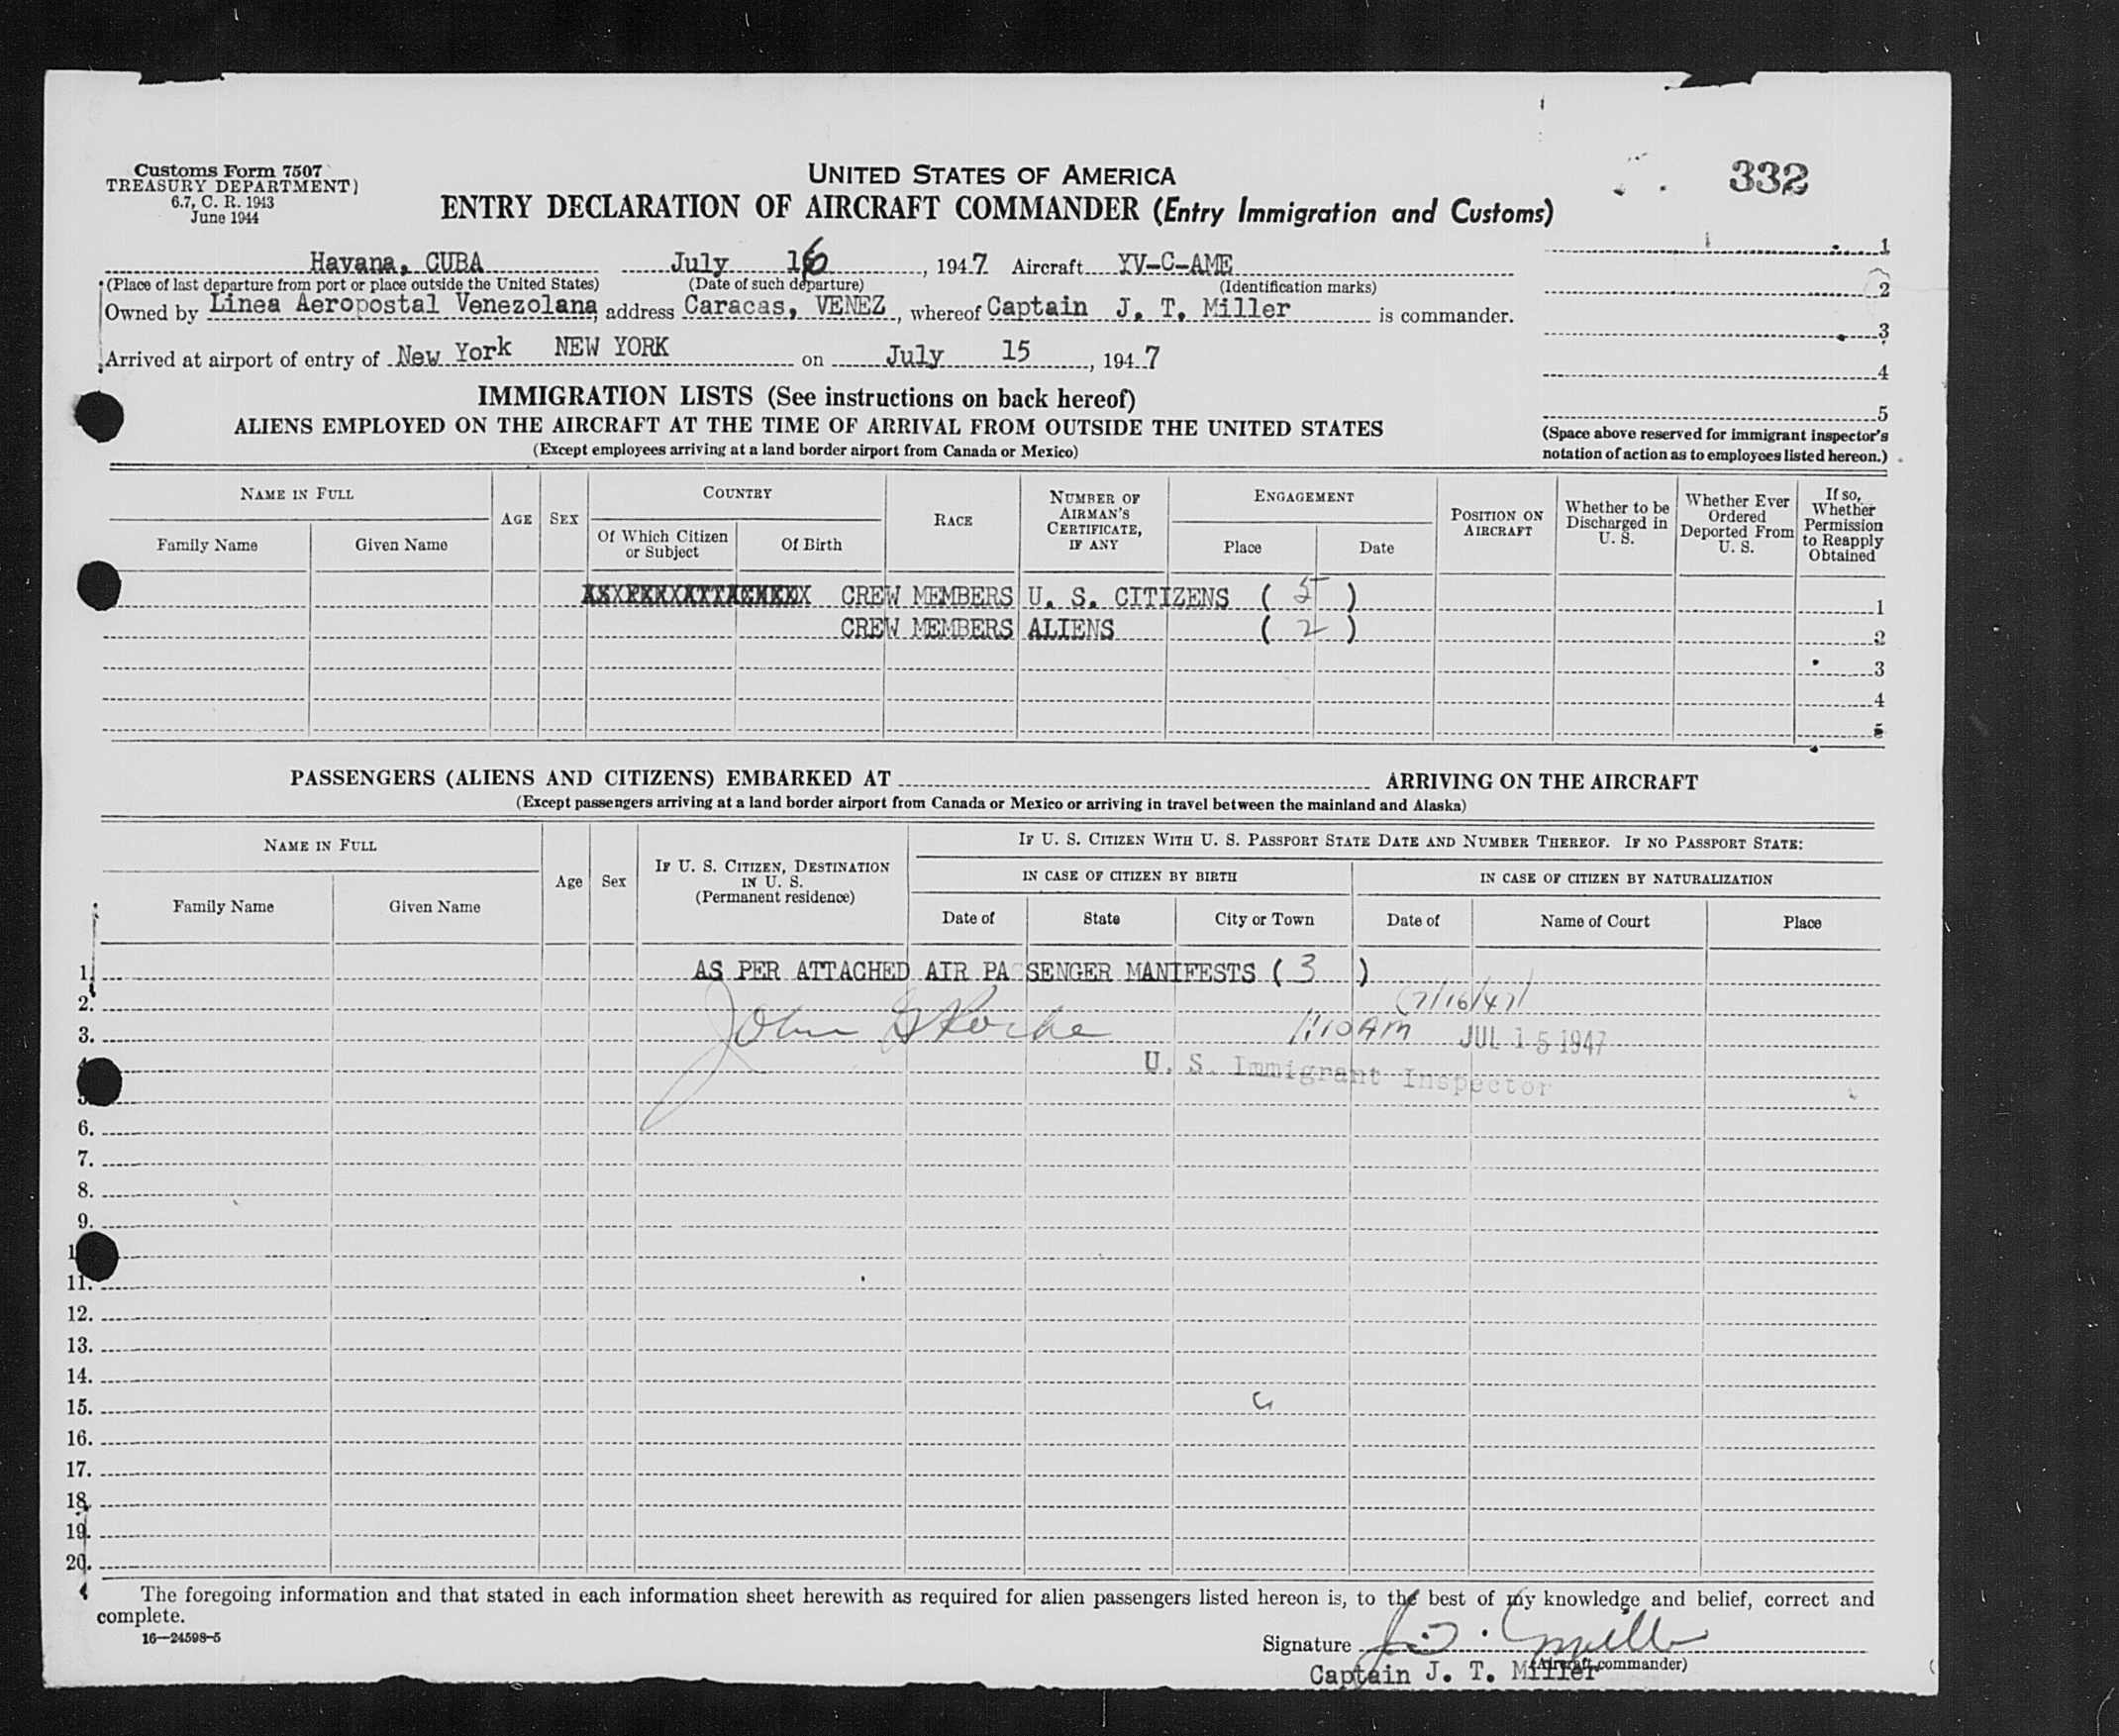 332
Customs Form 7507
TREASURY DEPARTMENT)
6.7, C. R. 1943
June 1944
UNITED STATES OF AMERICA
ENTRY DECLARATION OF AIRCRAFT COMMANDER (Entry Immigration and Customs)
Havana, CUBA July 16, 1947 Aircraft YV-C-AME
(Place of last departure from port or place outside the United States) (Date of such departure) (Identification marks)
Owned by Linea Aeropostal Venezolana, address Caracas, VENEZ, whereof Captain J. T. Miller is commander.
Arrived at airport of entry of New York NEW YORK on July 15, 1947
1
2
3
4
5
(Space above reserved for immigrant inspector's
notation of action as to employees listed hereon.)
IMMIGRATION LISTS (See instructions on back hereof)
ALIENS EMPLOYED ON THE AIRCRAFT AT THE TIME OF ARRIVAL FROM OUTSIDE THE UNITED STATES
(Except employees arriving at a land border airport from Canada or Mexico)
NAME IN FULL
Family Name
Given Name
AGE
SEX
COUNTRY
Of Which Citizen
or Subject
Of Birth
RACE
NUMBER OF
AIRMAN'S
CERTIFICATE,
IF ANY
ENGAGEMENT
Place
Date
POSITION ON
AIRCRAFT
Whether to be
Discharged in
U. S.
Whether Ever
Ordered
Deported From
U. S.
If so,
Whether
Permission
to Reapply
Obtained
CREW MEMBERS U. S. CITIZENS ( 5 ) 1
CREW MEMBERS ALIENS ( 2 ) 2
3
4
5
PASSENGERS (ALIENS AND CITIZENS) EMBARKED AT ARRIVING ON THE AIRCRAFT
(Except passengers arriving at a land border airport from Canada or Mexico or arriving in travel between the mainland and Alaska)
NAME IN FULL
Family Name
Given Name
Age
Sex
IF U. S. CITIZEN, DESTINATION
IN U. S.
(Permanent residence)
IF U. S. CITIZEN WITH U. S. PASSPORT STATE DATE AND NUMBER THEREOF. IF NO PASSPORT STATE:
IN CASE OF CITIZEN BY BIRTH
Date of
State
City or Town
IN CASE OF CITIZEN BY NATURALIZATION
Date of
Name of Court
Place
1. AS PER ATTACHED AIR PASSENGER MANIFESTS ( 3 )
2. (7/16/47)
3. John 11:10 AM JUL 15 1947
U. S. Immigrant Inspector
6.
7.
8.
9.
11.
12.
13.
14.
15.
16.
17.
18.
19.
20.
The foregoing information and that stated in each information sheet herewith as required for alien passengers listed hereon is, to the best of my knowledge and belief, correct and
complete.
16—24598-5
Signature J. T. Miller
(Aircraft commander)
Captain J. T. Miller